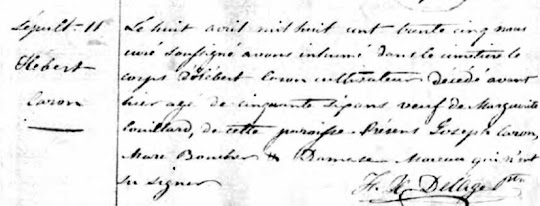 Sépult. 11
Hébert
Caron
Le huit avril mil huit cent trente cinq nous
curé soussigné avons inhumé dans le cimetière le
corps d'Hébert Caron cultivateur décédé avant
hier agé de cinquante six ans veuf de Marguerite
Couillard, de cette paroisse. Présens Joseph Caron,
Marc Boucher & Damase Moreau qui n'ont
su signer
F. X. Delâge Ptre